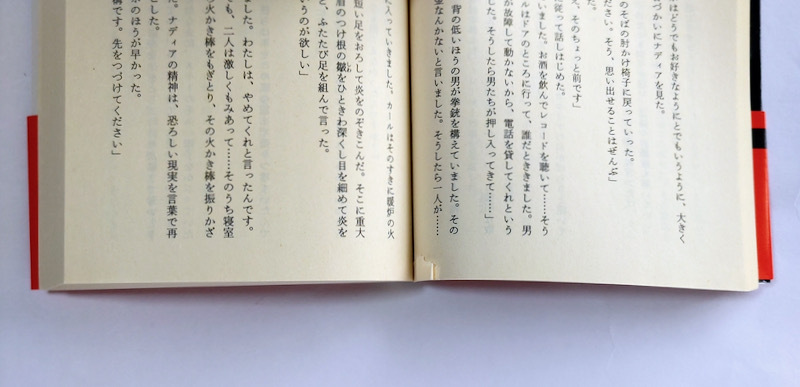 はどうでもお好きなようにとでもいうように、大きく
づかいにナディアを見た。
のそばの肘かけ椅子に戻っていった。
ださい。そう、思い出せることはぜんぶ」
た。
え、そのちょっと前です」
従って話しはじめた。
いました。お酒を飲んでレコードを聴いて……そう
ルはドアのところに行って、誰だとききました。男
が故障して動かないから、電話を貸してくれという
した。そうしたら男たちが押し入ってきて……」
背の低いほうの男が拳銃を構えていました。その
壺なんかないと言いました。そうしたら一人が……
に入っていきました。カールはそのすきに暖炉の火
短い足をおろして炎をのぞきこんだ。そこに重大
眉のつけ根の皺をひときわ深くし目を細めて炎を
と、ふたたび足を組んで言った。
いうのが欲しい」
ました。わたしは、やめてくれと言ったんです。
も、二人は激しくもみあって……そのうち寝室
火かき棒をもぎとり、その火かき棒を振りかざ
た。ナディアの精神は、恐ろしい現実を言葉で再
こした。
のほうが早かった。
構です。先をつづけてください」